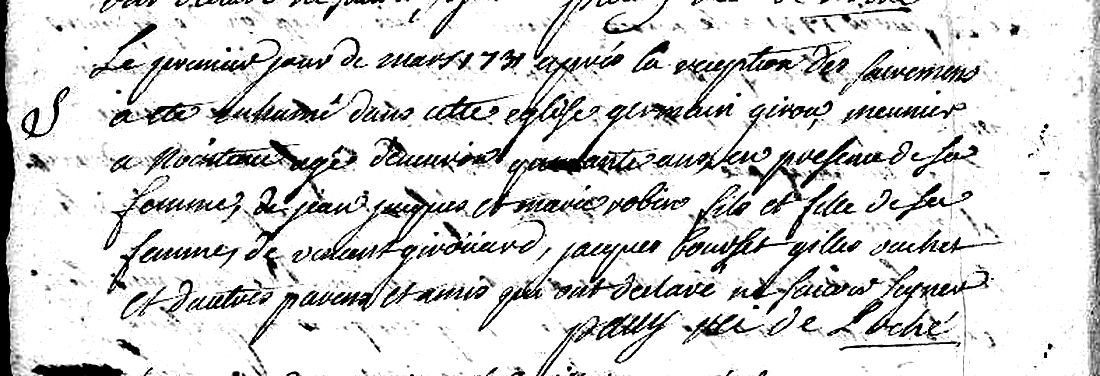 Le premier jour de mars 1731 apprés la reception des sacremens
S a ete inhumé dans cette eglise germain girou, meunier
a agé d'environ quarante ans, en presence de sa
femme, de jean jacques et marie robin fils et fille de sa
femme, de vincent giroüard, jacques gilles
et d'autres parens et amis qui ont declaré ne savoir signer
pauly de Loché